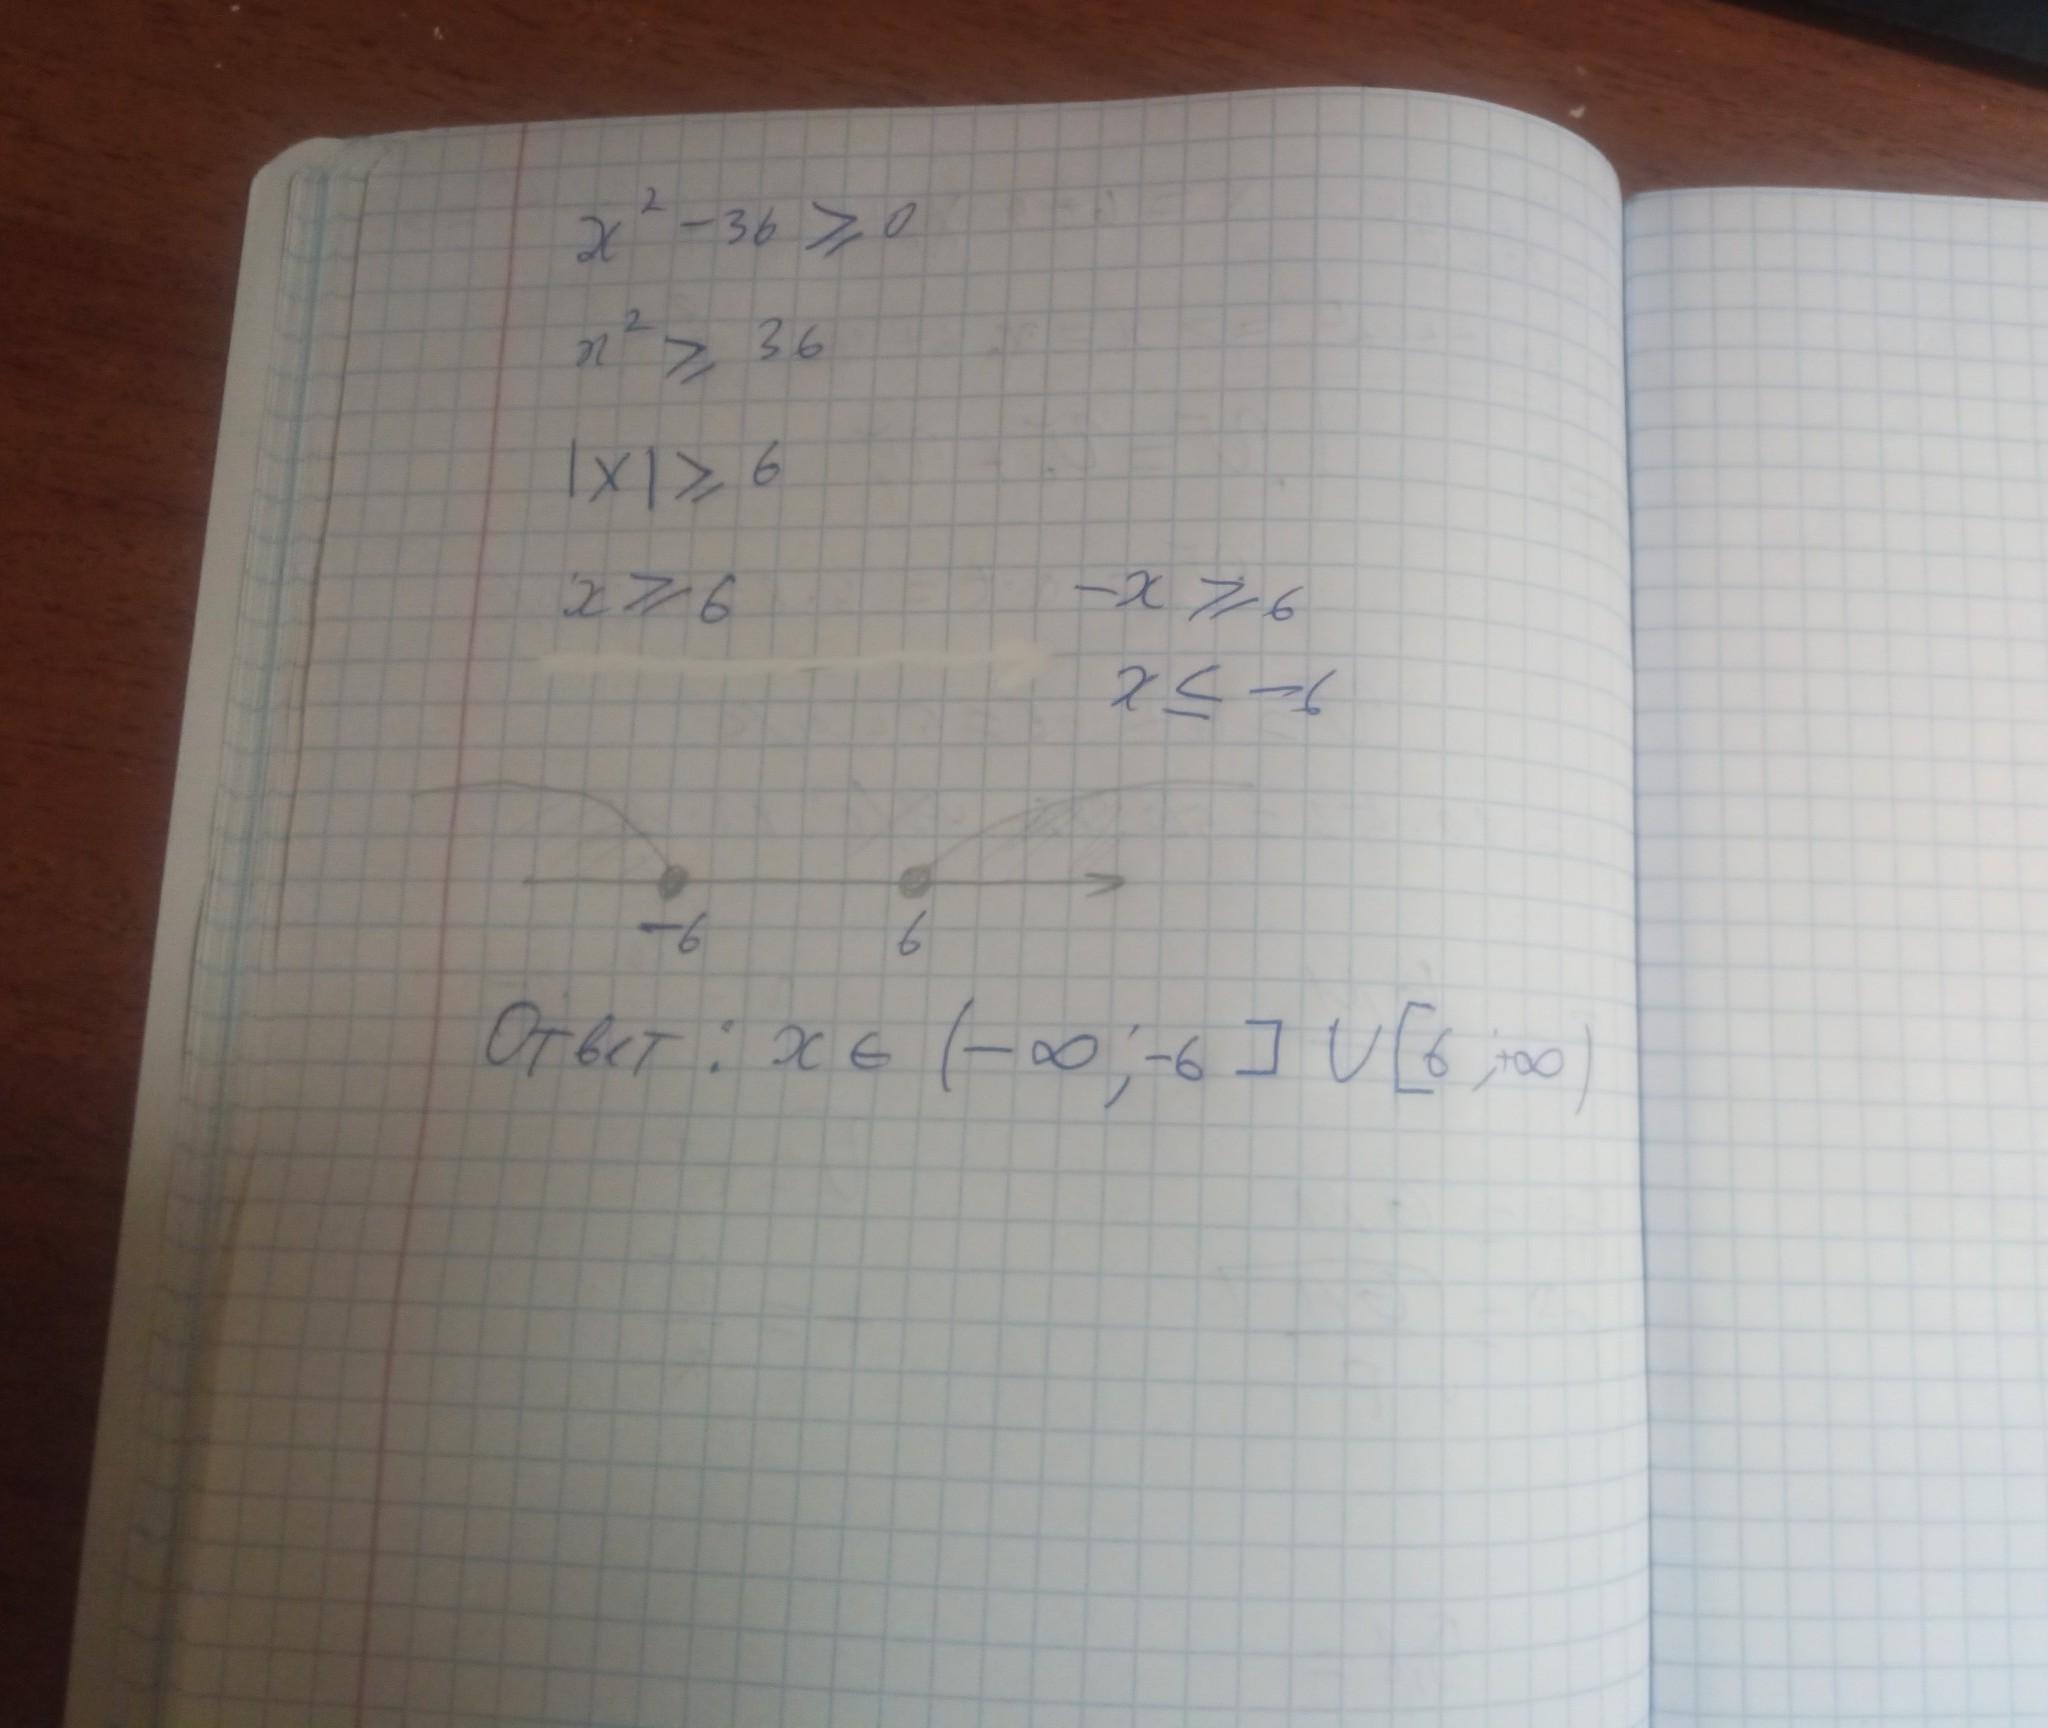 x² - 36 ⩾ 0
x² ⩾ 36
|x| ⩾ 6
x ⩾ 6 -x ⩾ 6
x ≤ -6
-6 6
Ответ: x ∈ (-∞; -6] ∪ [6; +∞)